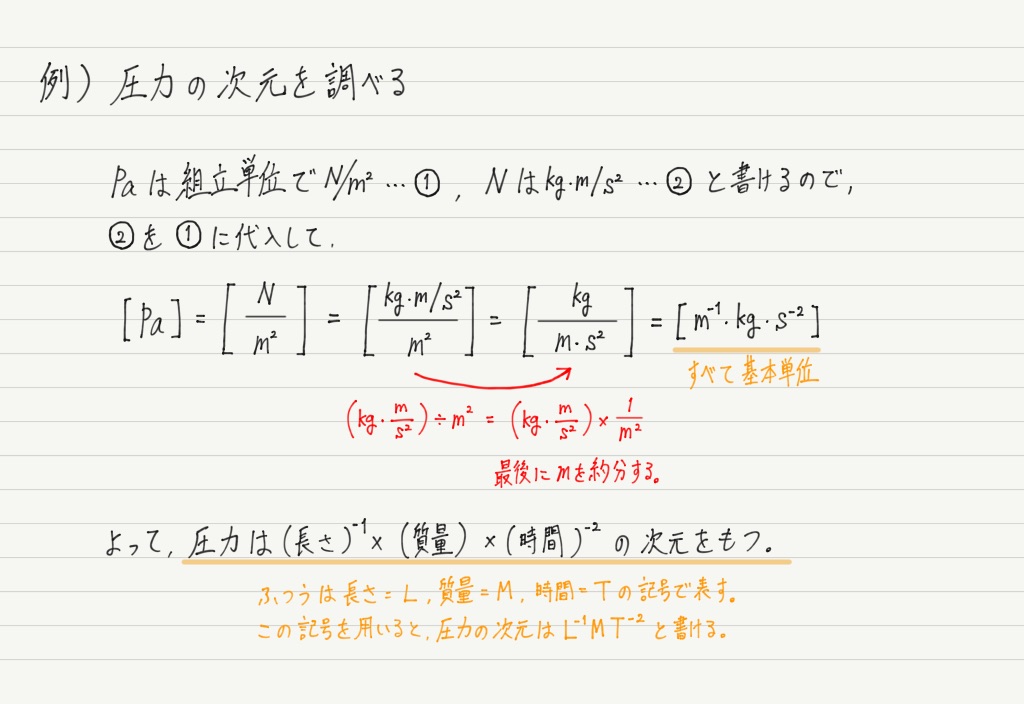 例) 圧力の次元を調べる
Paは組立単位でN/m²…①, Nはkg・m/s²…②と書けるので,
②を①に代入して,
[Pa] = [N/m²] = [(kg・m/s²)/m²] = [kg/(m・s²)] = [m⁻¹・kg・s⁻²]
すべて基本単位
(kg・m/s²)÷m² = (kg・m/s²)×1/m²
最後にmを約分する。
よって, 圧力は(長さ)⁻¹×(質量)×(時間)⁻²の次元をもつ。
ふつうは長さ=L, 質量=M, 時間=Tの記号で表す。
この記号を用いると, 圧力の次元はL⁻¹MT⁻²と書ける。